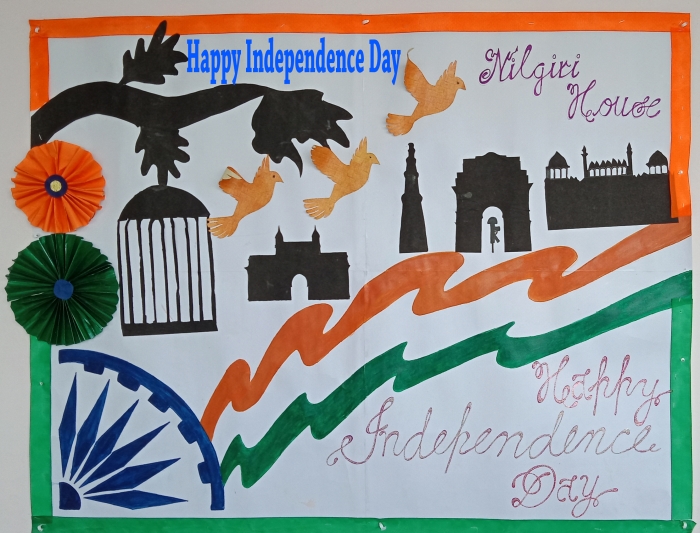 Happy Independence Day
Nilgiri
House
Happy
Independence
Day